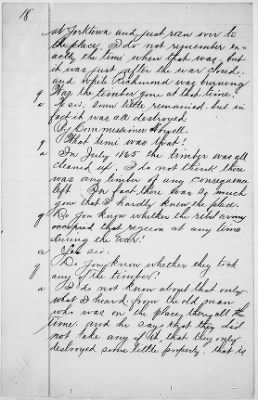 18
at Yorktown and just ran over to
the place. I do not remember ex-
actly the time when that was, but
it was just after the war closed;
and while Richmond was burning
q Was the timber gone at that time?
a No sir; some little remained, but in
fact it was all destroyed
By Commissioner Howell.
q What time was that?
a In July 1865 the timber was all
cleaned up. I do not think there
was any timber of any consequence
left. In fact there was so much
gone that I hardly knew the place.
q Do you know whether the rebel army
occupied that region at any time
during the war?
a Yes sir.
q Do you know whether they took
any of the timber?
a I do not know about that only
what I heard from the old man
who was on the place there all the
time. and he says that they did
not take any of it, that they only
destroyed some little property. that is